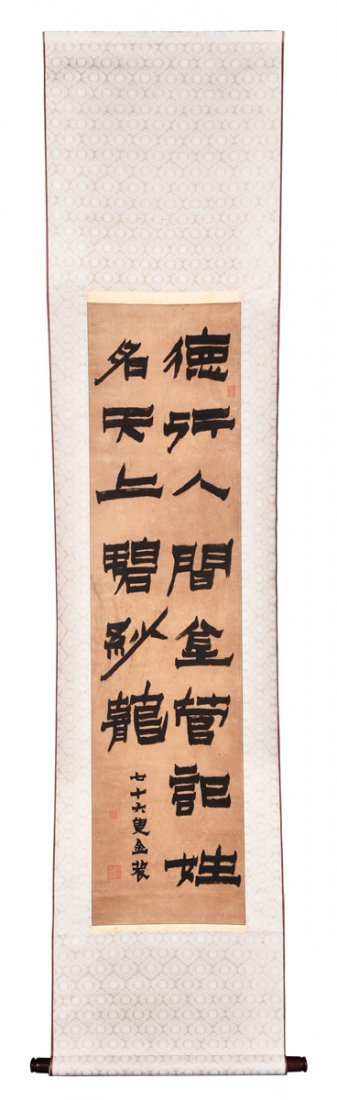 德行人間金管記姓
名天上碧紗龍
七十六叟金農